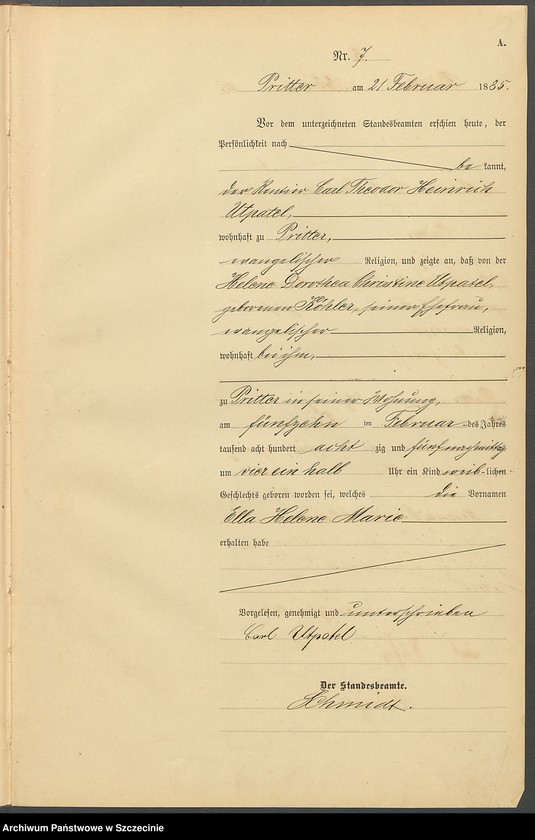 A.
Nr. 7.
Pritter am 21 Februar 1885.
Vor dem unterzeichneten Standesbeamten erschien heute, der
Persönlichkeit nach
be kannt,
der Rentier Carl Theodor Heinrich
Utpatel,
wohnhaft zu Pritter,
evangelischer Religion, und zeigte an, daß von der
Helene Dorothea Christine Utpatel,
geborenen Köhler, seiner Ehefrau,
evangelischer Religion,
wohnhaft bei ihm,
zu Pritter in seiner Wohnung,
am fünfzehn ten Februar des Jahres
tausend acht hundert acht zig und fünf nachmittags
um vier ein halb Uhr ein Kind weib-lichen
Geschlechts geboren worden sei, welches die Vornamen
Ella Helene Marie
erhalten habe
Vorgelesen, genehmigt und unterschrieben
Carl Utpatel
Der Standesbeamte.
Schmidt.
Archiwum Państwowe w Szczecinie